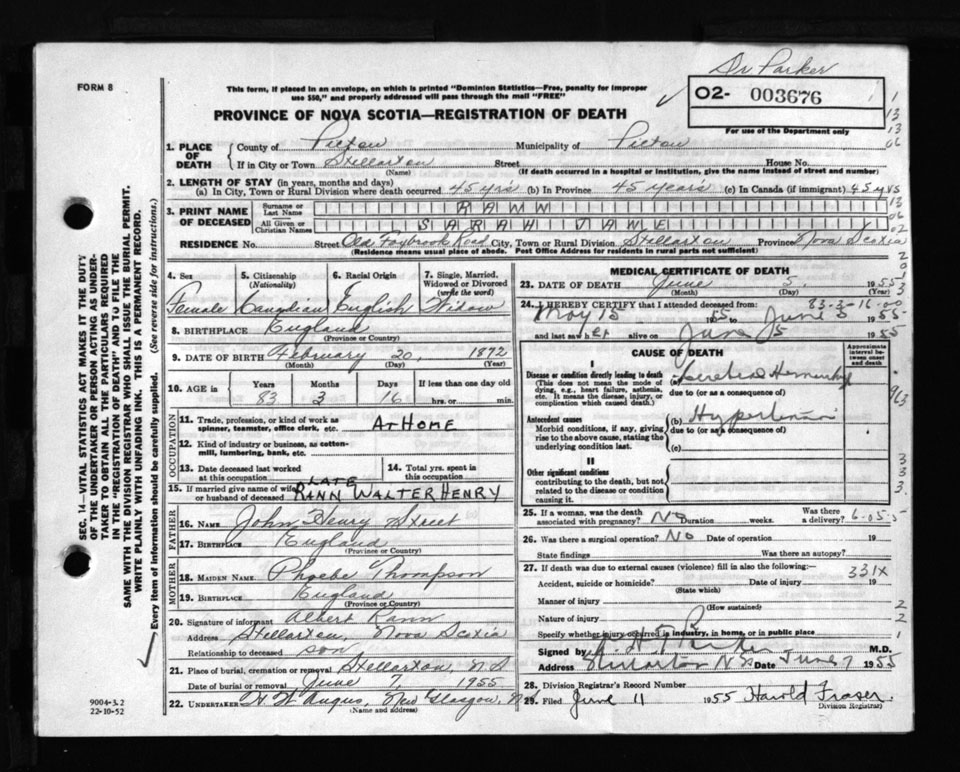 Dr Parker
FORM 8
This form, if placed in an envelope, on which is printed "Dominion Statistics—Free, penalty for improper
use $50," and properly addressed will pass through the mail "FREE"
O2- 003676
For use of the Department only
PROVINCE OF NOVA SCOTIA—REGISTRATION OF DEATH
1. PLACE OF DEATH
County of Pictou Municipality of Pictou
If in City or Town Stellarton Street House No.
(Name) (If death occurred in a hospital or institution, give the name instead of street and number)
2. LENGTH OF STAY (in years, months and days)
(a) In City, Town or Rural Division where death occurred 45 yrs (b) In Province 45 years (c) In Canada (if immigrant) 45 yrs
3. PRINT NAME OF DECEASED
Surname or Last Name RANN
All Given or Christian Names SARAH JANE
RESIDENCE No. Street Old Foxbrook Road City, Town or Rural Division Stellarton Province Nova Scotia
(Residence means usual place of abode. Post Office Address for residents in rural parts not sufficient)
4. Sex Female
5. Citizenship (Nationality) Canadian
6. Racial Origin English
7. Single, Married, Widowed or Divorced (write the word) Widow
8. BIRTHPLACE England
(Province or Country)
9. DATE OF BIRTH February 20, 1872
(Month) (Day) (Year)
10. AGE in Years Months Days If less than one day old
83 3 16 hrs. or min.
OCCUPATION
11. Trade, profession, or kind of work as spinner, teamster, office clerk, etc. AT HOME
12. Kind of industry or business, as cotton-mill, lumbering, bank, etc.
13. Date deceased last worked at this occupation
14. Total yrs. spent in this occupation
15. If married give name of wife or husband of deceased LATE RANN WALTER HENRY
FATHER
16. NAME John Henry Street
17. BIRTHPLACE England
(Province or Country)
MOTHER
18. MAIDEN NAME Phoebe Thompson
19. BIRTHPLACE England
(Province or Country)
20. Signature of informant Albert Rann
Address Stellarton, Nova Scotia
Relationship to deceased son
21. Place of burial, cremation or removal Stellarton, N.S
Date of burial or removal June 7, 1955
22. UNDERTAKER H W Angus, New Glasgow, N.S
(Name and address)
MEDICAL CERTIFICATE OF DEATH
23. DATE OF DEATH June 5, 1955
(Month) (Day)
83-3-16.00
24. I HEREBY CERTIFY that I attended deceased from:
May 15 1955 to June 5 1955
and last saw her alive on June 5 1955
CAUSE OF DEATH
Approximate interval between onset and death
I
Disease or condition directly leading to death
(This does not mean the mode of dying, e.g., heart failure, asthenia, etc. It means the disease, injury, or complication which caused death.)
(a) Cerebral Hemorrhage
due to (or as a consequence of)
Antecedent causes
Morbid conditions, if any, giving rise to the above cause, stating the underlying condition last.
(b) Hypertension
due to (or as a consequence of)
(c)
II
Other significant conditions
contributing to the death, but not related to the disease or condition causing it.
25. If a woman, was the death associated with pregnancy? No Duration weeks. Was there a delivery?
26. Was there a surgical operation? No Date of operation 19
State findings Was there an autopsy?
27. If death was due to external causes (violence) fill in also the following: 331X
Accident, suicide or homicide? Date of injury 19
(State which)
Manner of injury
(How sustained)
Nature of injury
Specify whether injury occurred in industry, in home, or in public place
Signed by Parker M.D.
Address Stellarton NS Date June 7 1955
28. Division Registrar's Record Number
29. Filed June 11 1955 Harold Fraser.
(Division Registrar)
SEC. 14—VITAL STATISTICS ACT MAKES IT THE DUTY
OF THE UNDERTAKER OR PERSON ACTING AS UNDER-
TAKER TO OBTAIN ALL THE PARTICULARS REQUIRED
IN THE "REGISTRATION OF DEATH" AND TO FILE THE
SAME WITH THE DIVISION REGISTRAR WHO SHALL ISSUE THE BURIAL PERMIT.
WRITE PLAINLY WITH UNFADING INK. THIS IS A PERMANENT RECORD.
Every item of information should be carefully supplied. (See reverse side for instructions.)
9004-3.2
22-10-52